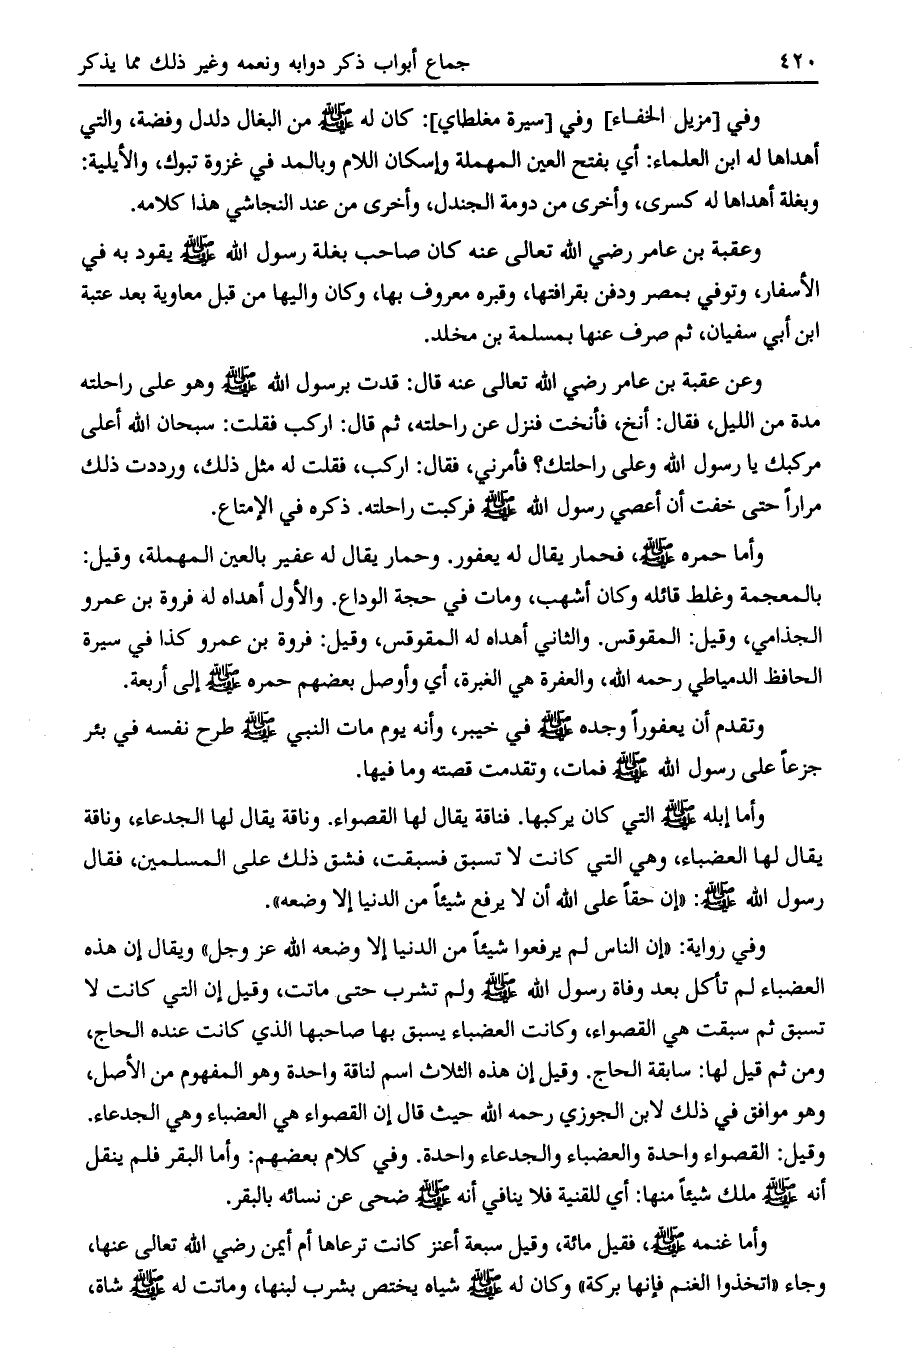 ٤٢٠ جماع أبواب ذكر دوابه ونعمه وغير ذلك مما يذكر
وفي [مزيل الخفاء] وفي [سيرة مغلطاي]: كان له ﷺ من البغال دلدل وفضة، والتي
أهداها له ابن العلماء: أي بفتح العين المهملة وإسكان اللام وبالمد في غزوة تبوك، والأيلية:
وبغلة أهداها له كسرى، وأخرى من دومة الجندل، وأخرى من عند النجاشي هذا كلامه.
وعقبة بن عامر رضي الله تعالى عنه كان صاحب بغلة رسول الله ﷺ يقود به في
الأسفار، وتوفي بمصر ودفن بقرافتها، وقبره معروف بها، وكان واليها من قبل معاوية بعد عتبة
ابن أبي سفيان، ثم صرف عنها بمسلمة بن مخلد.
وعن عقبة بن عامر رضي الله تعالى عنه قال: قدت برسول الله ﷺ وهو على راحلته
مدة من الليل، فقال: أنخ، فأنخت فنزل عن راحلته، ثم قال: اركب فقلت: سبحان الله أعلى
مركبك يا رسول الله وعلى راحلتك؟ فأمرني، فقال: اركب، فقلت له مثل ذلك، ورددت ذلك
مراراً حتى خفت أن أعصي رسول الله ﷺ فركبت راحلته. ذكره في الإمتاع.
وأما حمره ﷺ، فحمار يقال له يعفور. وحمار يقال له عفير بالعين المهملة، وقيل:
بالمعجمة وغلط قائله وكان أشهب، ومات في حجة الوداع. والأول أهداه له فروة بن عمرو
الجذامي، وقيل: المقوقس. والثاني أهداه له المقوقس، وقيل: فروة بن عمرو كذا في سيرة
الحافظ الدمياطي رحمه الله، والعفرة هي الغبرة، أي وأوصل بعضهم حمره ﷺ إلى أربعة.
وتقدم أن يعفوراً وجده ﷺ في خيبر، وأنه يوم مات النبي ﷺ طرح نفسه في بئر
جزعاً على رسول الله ﷺ فمات، وتقدمت قصته وما فيها.
وأما إبله ﷺ التي كان يركبها. فناقة يقال لها القصواء. وناقة يقال لها الجدعاء، وناقة
يقال لها العضباء، وهي التي كانت لا تسبق فسبقت، فشق ذلك على المسلمين، فقال
رسول الله ﷺ: «إن حقاً على الله أن لا يرفع شيئاً من الدنيا إلا وضعه».
وفي رواية: «إن الناس لم يرفعوا شيئاً من الدنيا إلا وضعه الله عز وجل» ويقال إن هذه
العضباء لم تأكل بعد وفاة رسول الله ﷺ ولم تشرب حتى ماتت، وقيل إن التي كانت لا
تسبق ثم سبقت هي القصواء، وكانت العضباء يسبق بها صاحبها الذي كانت عنده الحاج،
ومن ثم قيل لها: سابقة الحاج. وقيل إن هذه الثلاث اسم لناقة واحدة وهو المفهوم من الأصل،
وهو موافق في ذلك لابن الجوزي رحمه الله حيث قال إن القصواء هي العضباء وهي الجدعاء.
وقيل: القصواء واحدة والعضباء والجدعاء واحدة. وفي كلام بعضهم: وأما البقر فلم ينقل
أنه ﷺ ملك شيئاً منها: أي للقنية فلا ينافي أنه ﷺ ضحى عن نسائه بالبقر.
وأما غنمه ﷺ، فقيل مائة، وقيل سبعة أعنز كانت ترعاها أم أيمن رضي الله تعالى عنها،
وجاء «اتخذوا الغنم فإنها بركة» وكان له ﷺ شياه يختص بشرب لبنها، وماتت له ﷺ شاة،